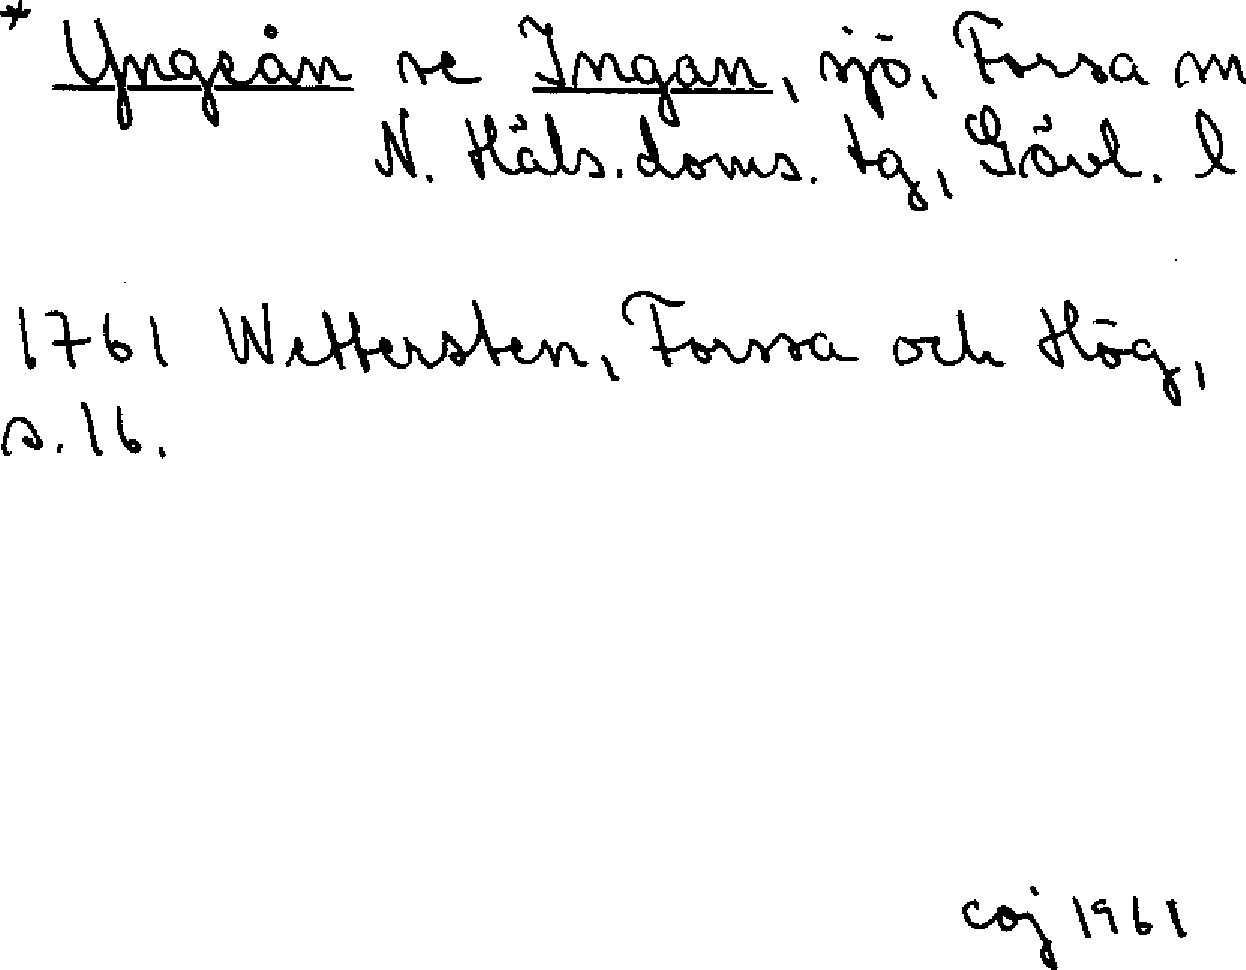 * Yngeån se Ingan, sjö, Forsa sn
N. Häls. doms. tg, Gävl. l
1761 Wettersten, Forssa och Hög,
s. 16.
coj 1961